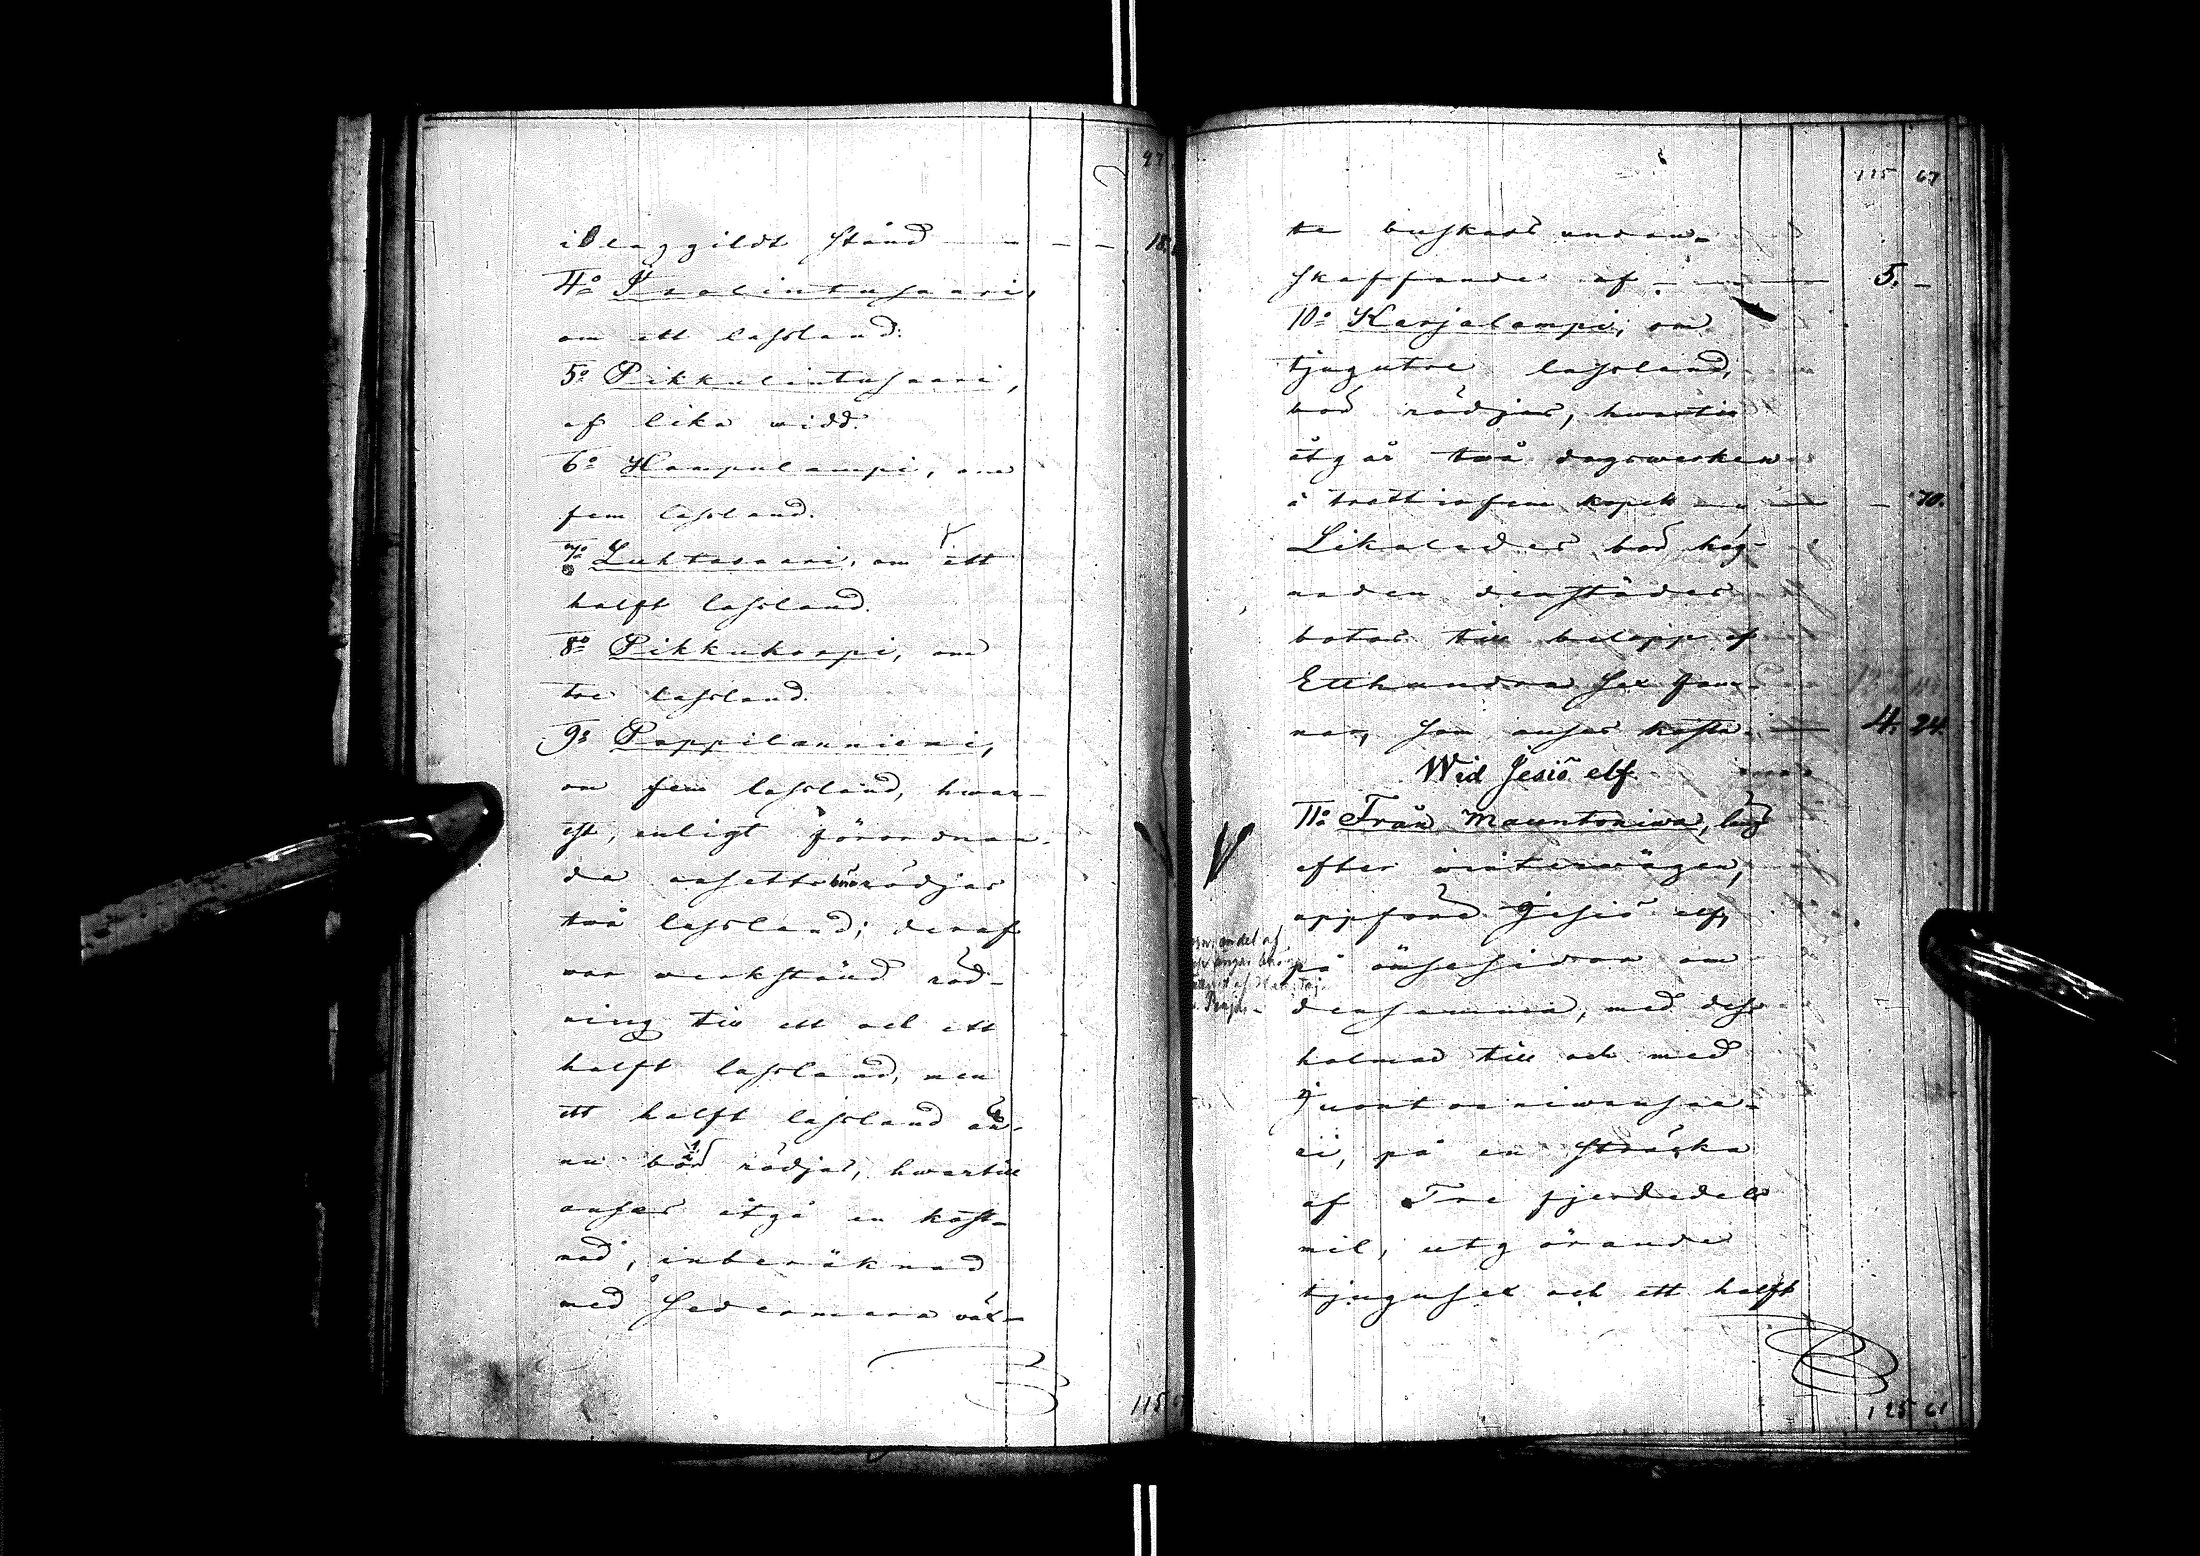 97
i laggildt stånd — — — 18.
4:o Isolintusaari,
om ett lassland.
5:o Pikkulintusaari,
af lika vidd.
6:o Hampulampi, om
fem lassland.
7:o Luhtasaari, om ett
halft lassland.
8:o Pikkukorpi, om
tre lassland.
9:o Pappilanniemi,
om fem lassland, hwar-
est, enligt förordnan-
de ansetts böra rödjas
två lassland; deraf
var verkstäld röd-
ning till ett och ett
halft lassland, men
ett halft lassland än-
nu bör rödjas, hwartill
anses åtgå en kost-
nad, inberäknad
med sedermera väx-
115
115 67
te buskars undan-
skaffande af — — — 5. —
10:o Karjalampi, om
tjugutre lassland,
bör rödjas, hwartill
åtgår två dagsverken
à trettiofem kopek — — — 70.
Likaledes bör häg-
naden derstädes
botas till belopp af
Etthundra sex famn
nar, som anses kosta — 4. 24.
Wid Jesiö elf.
11:o Från Mauntoniwa, längs
efter winterwägen,
uppföre Jesiö elf,
på ömse sidor om
densamma, med dess
holmar till och med
Juontoniwansaa-
ri, på en sträcka
af Tre fjerdedels
mil, utgörande
tjugusex och ett halft
125 61